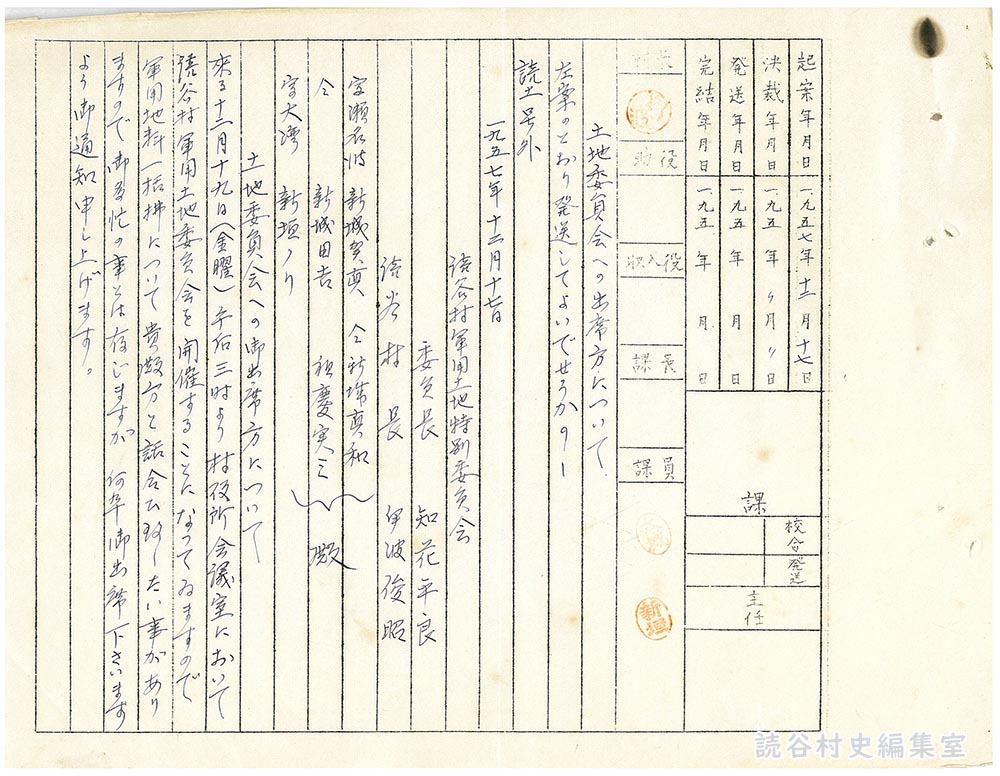 起案年月日 一九五七年十二月十七日
決裁年月日 一九五 年 〃月 〃日
発送年月日 一九五 年 月 日
完結年月日 一九五 年 月 日
課
校合
発送
主任
村長
助役
収入役
課長
課員
新垣
土地委員会への出席方について
左案のとおり発送してよいでせうか
読土号外
一九五七年十二月十七日
読谷村軍用土地特別委員会
委員長 知花平良
読谷村長 伊波俊昭
字瀬名波 新城賀真 仝 新垣真和
仝 新城田吉 祖慶実三 殿
字大湾 新垣ノリ
土地委員会への御出席方について
来る十二月十九日(金曜)午后三時より村役所会議室において
読谷村軍用土地委員会を開催することになってゐますので
軍用地料一括拂について貴殿方と話合ひ致したい事があり
ますので御多忙の事とは存じますが何卒御出席下さいます
よう御通知申し上げます。
読谷村史編集室